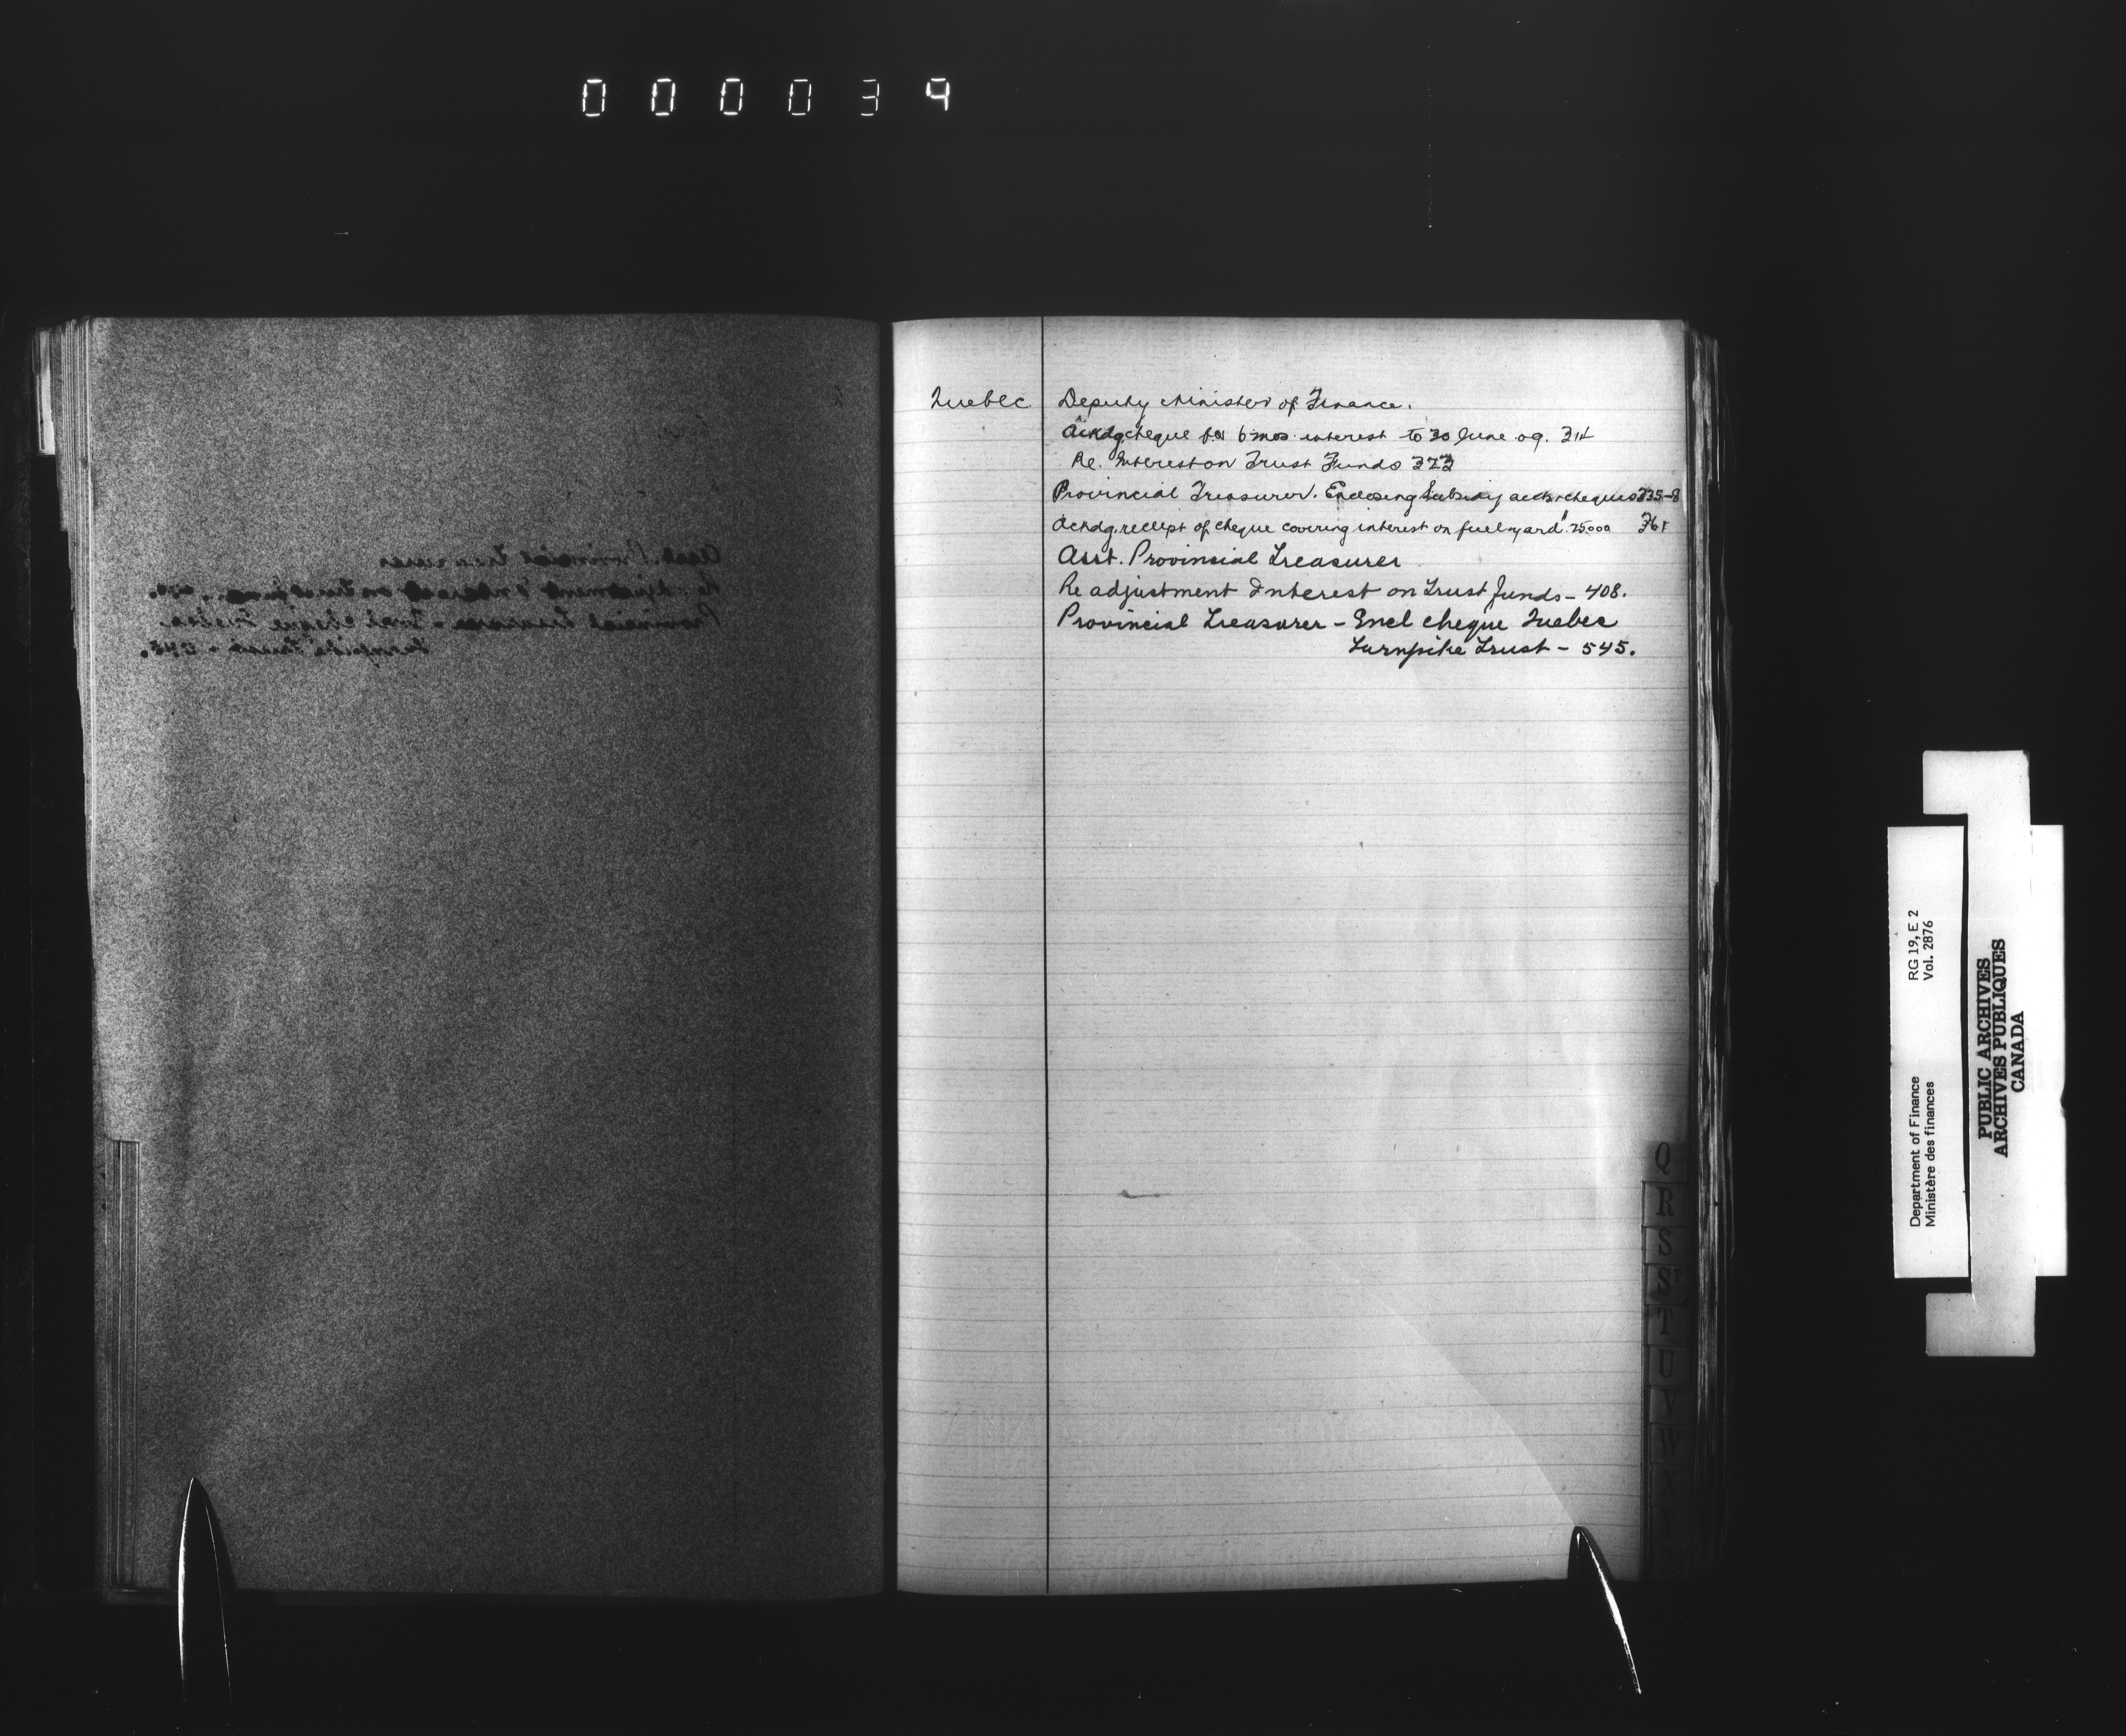 000039
Quebec Deputy Minister of Finance.
Ackdg. cheque for 6 mos. interest to 30 June 09. 314
Re. Interest on Trust Funds 373
Provincial Treasurer. Enclosing Subsidy accts + cheques 335-8
Ackdg. receipt of cheque covering interest on fuel yard "25000
Asst. Provincial Treasurer
Re adjustment Interest on Trust funds - 408.
Provincial Treasurer - Encl cheque Quebec
Turnpike Trust - 545.
Q
R
S
ST
T
U
V
W
Department of Finance RG 19, E 2
Ministère des finances Vol. 2876
PUBLIC ARCHIVES
ARCHIVES PUBLIQUES
CANADA